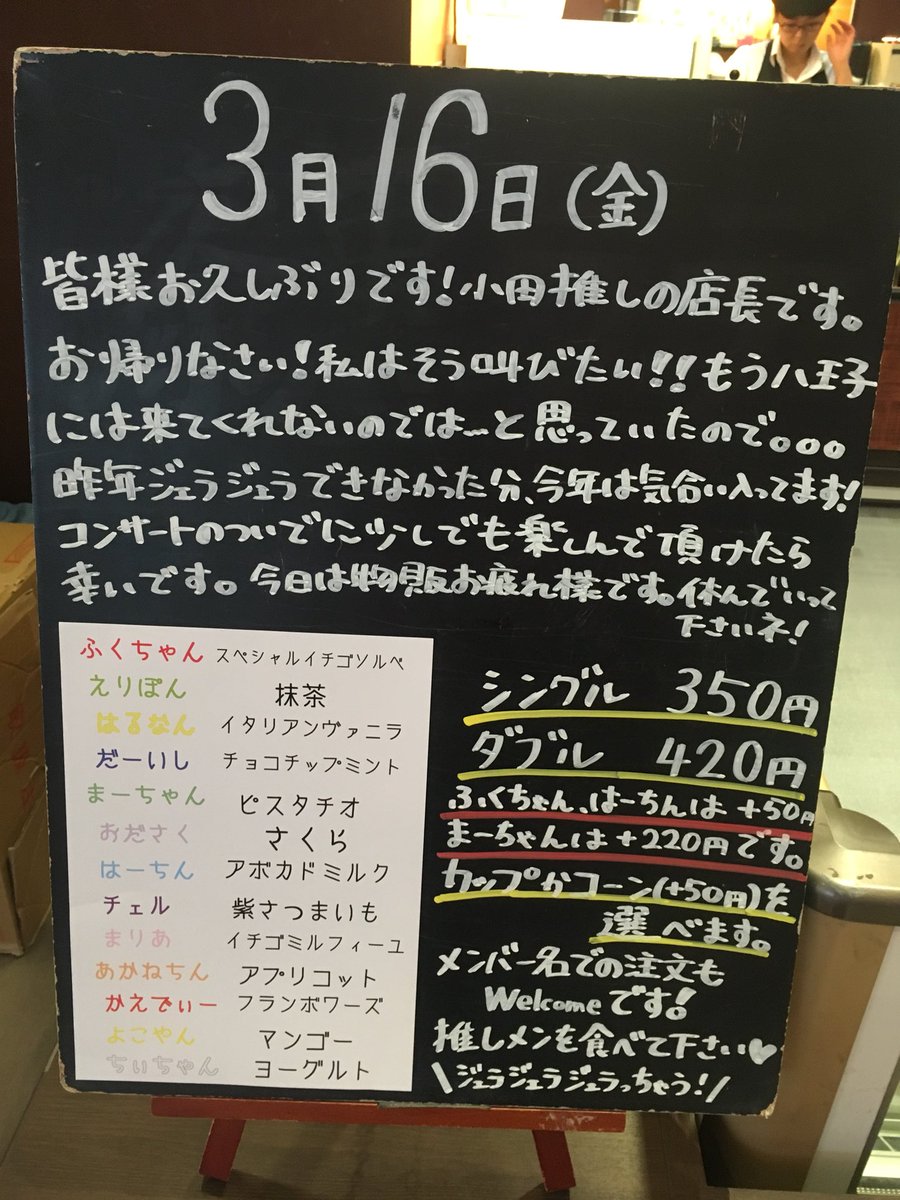 3月16日(金)
皆様お久しぶりです!小田推しの店長です。
お帰りなさい!私はそう叫びたい!!もう八王子
には来てくれないのでは…と思っていたので。。。
昨年ジェラジェラできなかった分、今年は気合い入ってます!
コンサートのついでに少しでも楽しんで頂けたら
幸いです。今日は物販お疲れ様です。休んでいって
下さいネ!
ふくちゃん スペシャルイチゴソルベ
えりぽん 抹茶
はるなん イタリアンヴァニラ
だーいし チョコチップミント
まーちゃん ピスタチオ
おださく さくら
はーちん アボカドミルク
チェル 紫さつまいも
まりあ イチゴミルフィーユ
あかねちん アプリコット
かえでぃー フランボワーズ
よこやん マンゴー
ちぃちゃん ヨーグルト
シングル 350円
ダブル 420円
ふくちゃん、はーちんは+50円
まーちゃんは+220円です。
カップかコーン(+50円)を
選べます。
メンバー名での注文も
Welcomeです!
推しメンを食べて下さい♥
\ジェラジェラジェラっちゃう!/